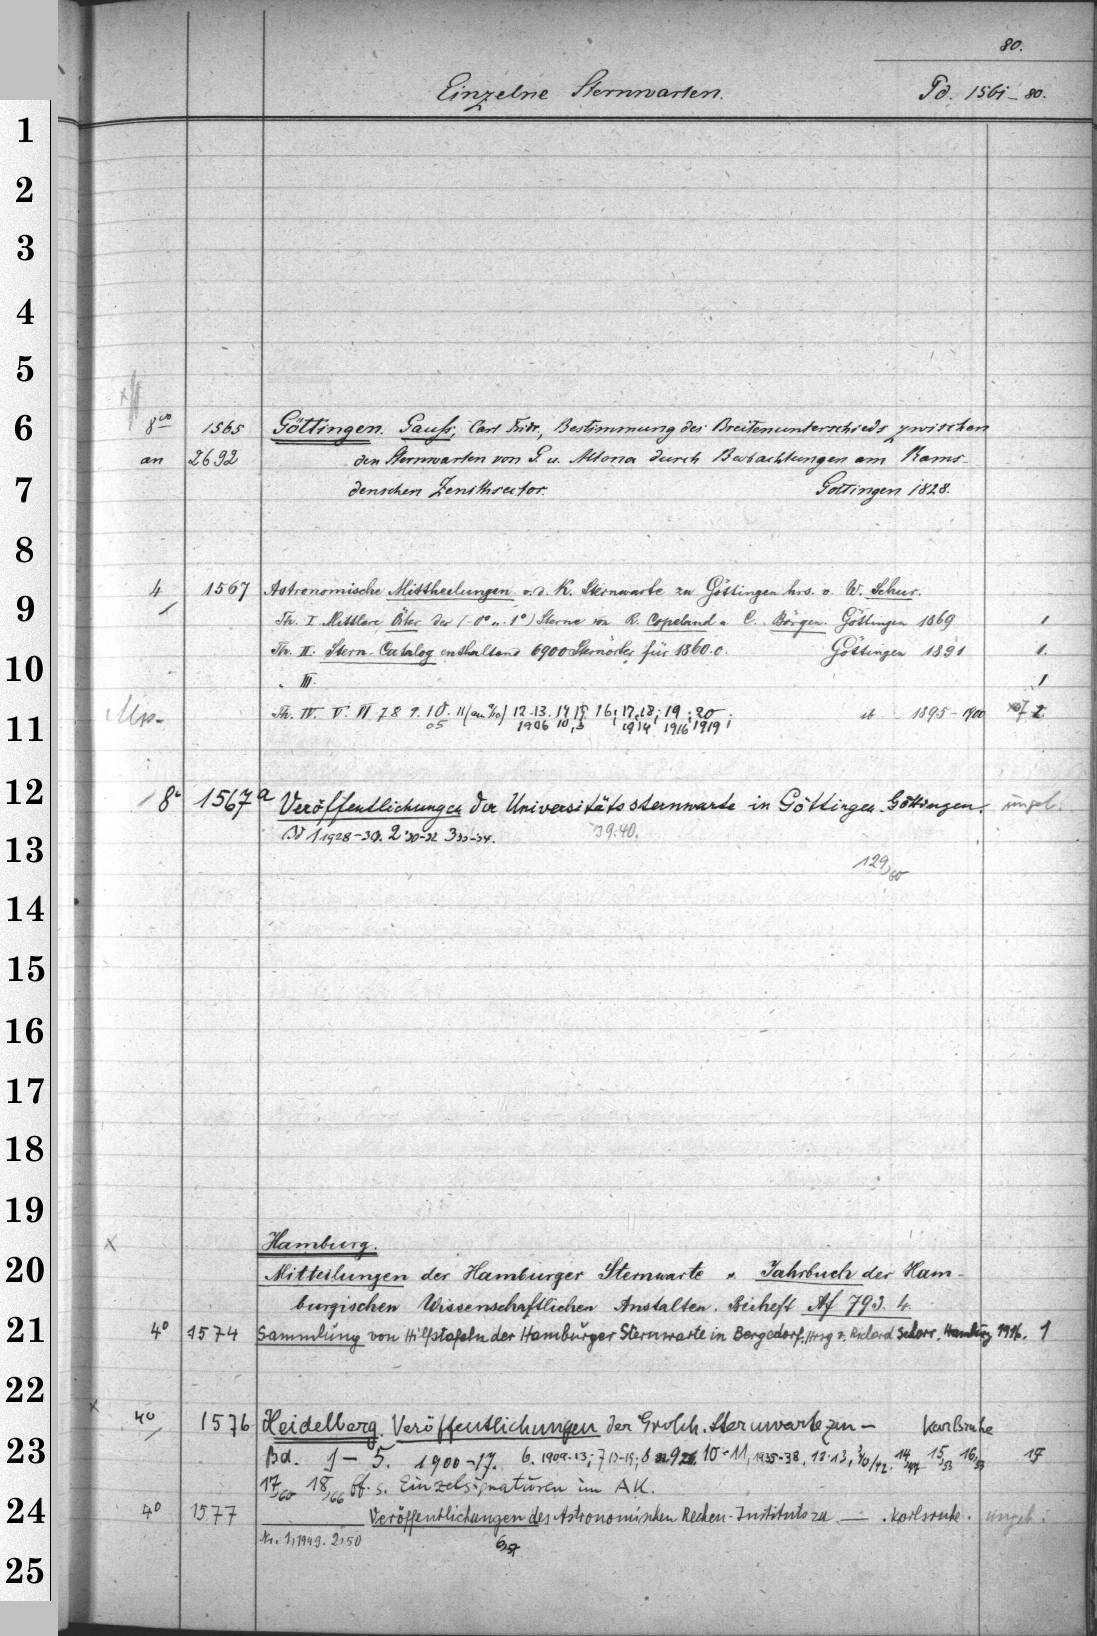 80.
Einzelne Sternwarten. Pd. 1561-80.
1
2
3
4
5
6 8vo 1565 Göttingen. Gauss, Carl Fridr., Bestimmung des Breitenunterschieds zwischen
an 2692 den Sternwarten von G. u. Altona durch Beobachtungen am Rams-
7 denschen Zenithsector. Göttingen 1828.
8
4 1567 Astronomische Mittheilungen v. d. K. Sternwarte zu Göttingen hrs. v. W. Schur.
9 Th. I Mittlere Örter der (-0° u. 1°) Sterne von R. Copeland u. C. Börgen. Göttingen 1869 1
10 Th. II. Stern-Catalog enthaltend 6900 Sternörter für 1860.0. Göttingen 1891 1.
" III. 1
11 Th. IV. V. VI 7 8 9. 10. 11 12. 13. 14 15 16; 17, 18; 19; 20; ib 1895-1900
05 1906 10, 13 1914 1916 1919
12 8° 1567a Veröffentlichungen der Universitätssternwarte in Göttingen. Göttingen. ungeb.
13 N 1 1928-30. 2 30-32 3 33-34. 39.40.
129/60
14
15
16
17
18
19
Hamburg.
20 Mitteilungen der Hamburger Sternwarte s. Jahrbuch der Ham-
burgischen Wissenschaftlichen Anstalten. Beiheft Af 793. 4.
21 4° 1574 Sammlung von Hilfstafeln der Hamburger Sternwarte in Bergedorf. Hrsg. v. Richard Schorr. Hamburg 1916. 1
22
4° 1576 Heidelberg. Veröffentlichungen der Grossh. Sternwarte zu — Karlsruhe
23 Bd. 1-5. 1900-17. 6. 1909-13; 7 13-19; 8 9 10-11, 1935-38, 12.13, 14/47 15/53 16/53 17
17/60 18/66 ff. s. Einzelsignaturen im AK.
24 4° 1577 Veröffentlichungen des Astronomischen Rechen-Instituts zu — . Karlsruhe. ungeb.
Nr. 1, 1949. 2, 50
25